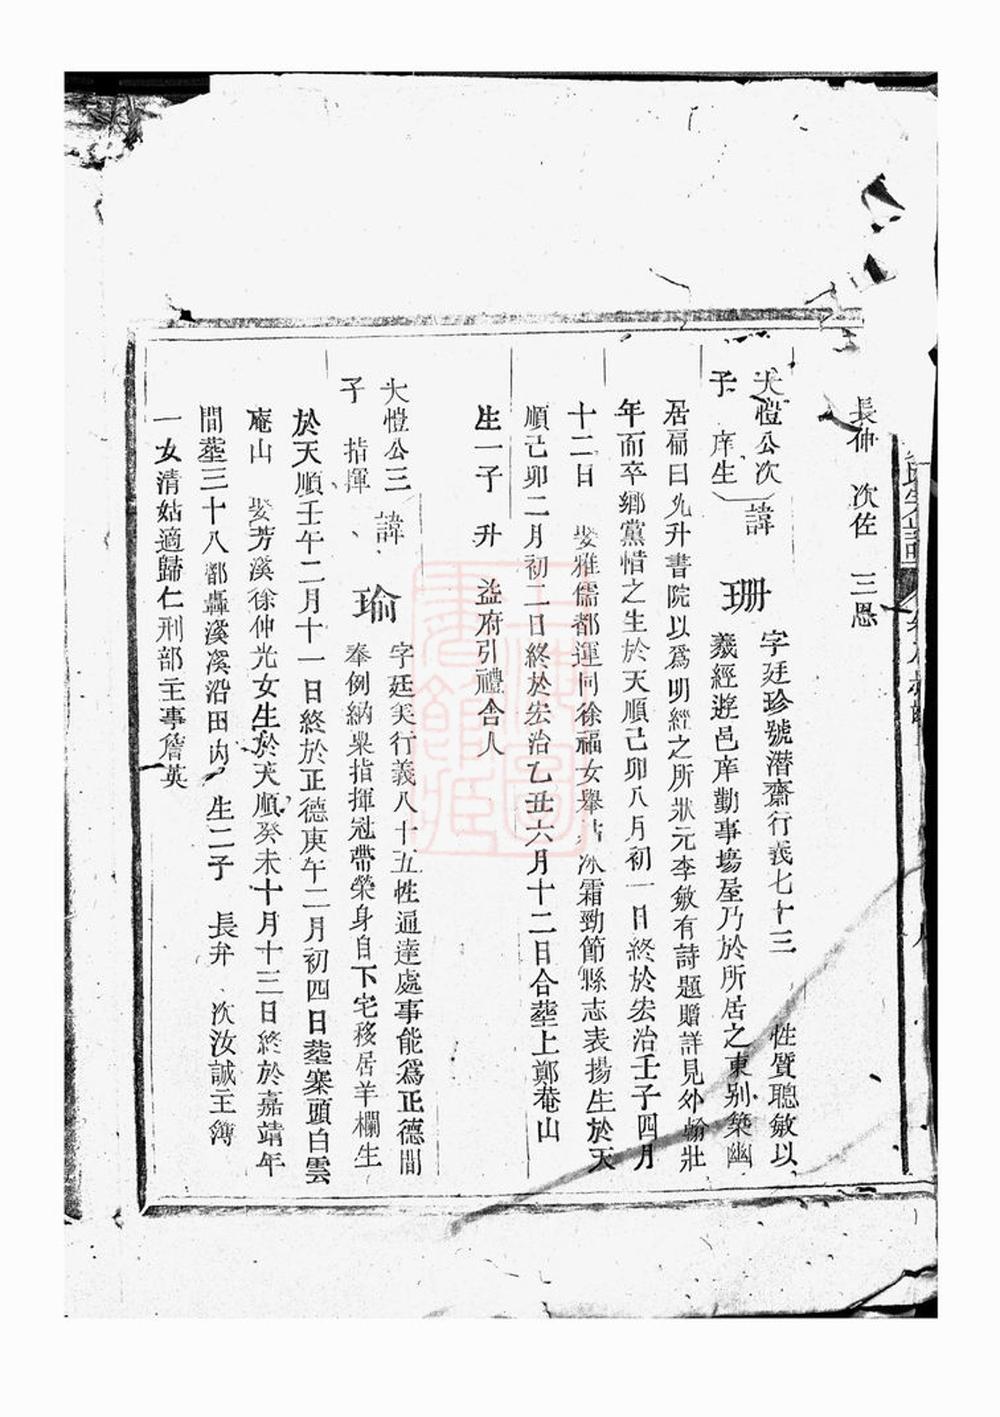 長伸　次佐　三恩
大愷公次
子　庠生
諱　珊
字廷珍號潛齋行義七十三　性質聰敏以
羲經遊邑庠勤事塲屋乃於所居之東别築幽
居扁曰允升書院以爲明經之所狀元李敏有詩題贈詳見外翰壯
年而卒鄉黨惜之生於天順己卯八月初一日終於宏治壬子四月
十二日　娶雅儒都運同徐福女舉 冰霜勁節縣志表揚生於天
順己卯二月初二日終於宏治乙丑六月十二日合塟上鄭菴山
生一子　升　益府引禮舍人
大愷公三
子　指揮
諱　瑜
字廷美行義八十五性通達處事能爲正德間
奉例納粟指揮冠帶榮身自下宅移居羊欄生
於天順壬午二月十一日終於正德庚午二月初四日塟寨頭白雲
庵山　娶芳溪徐仲光女生於天順癸未十月十三日終於嘉靖年
間塟三十八都轟溪溪沿田内　生二子　長弁　次汝誠主簿
一女清姑適歸仁刑部主事詹英